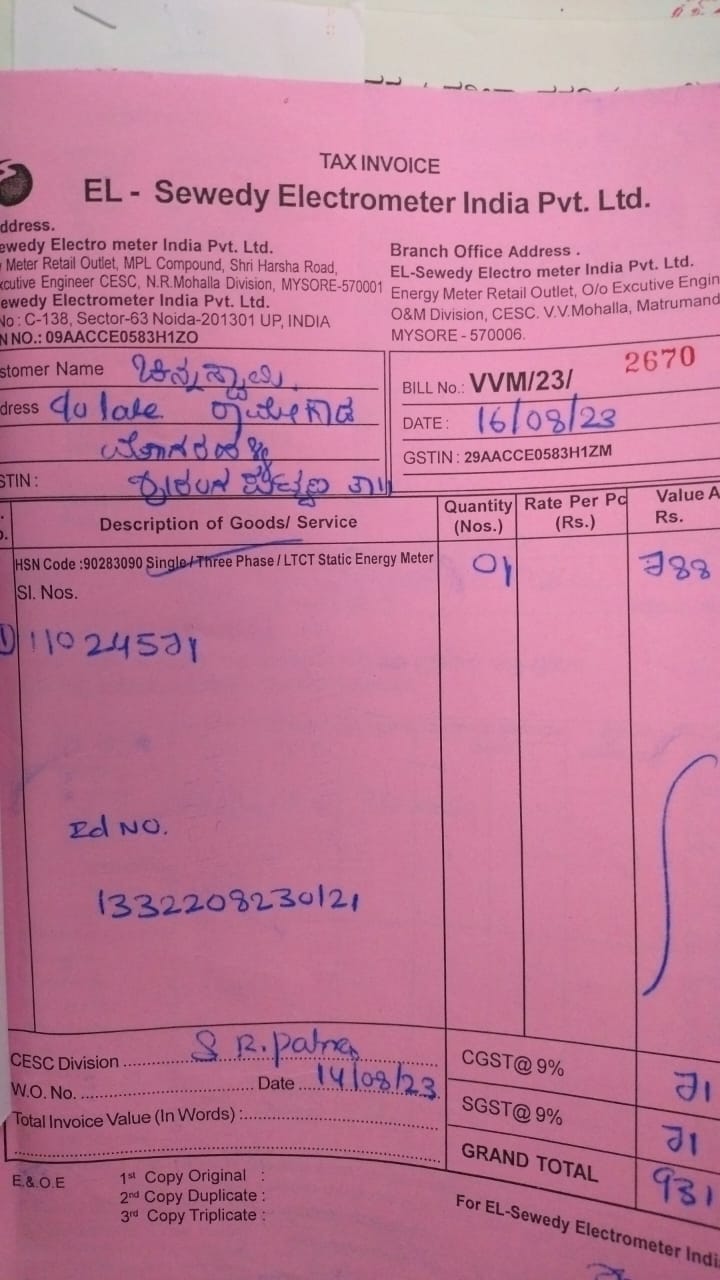 TAX INVOICE
EL - Sewedy Electrometer India Pvt. Ltd.
ddress.
ewedy Electro meter India Pvt. Ltd.
Meter Retail Outlet, MPL Compound, Shri Harsha Road,
xcutive Engineer CESC, N.R.Mohalla Division, MYSORE-570001
ewedy Electrometer India Pvt. Ltd.
No : C-138, Sector-63 Noida-201301 UP, INDIA
N NO.: 09AACCE0583H1ZO
Branch Office Address .
EL-Sewedy Electro meter India Pvt. Ltd.
Energy Meter Retail Outlet, O/o Excutive Engin
O&M Division, CESC. V.V.Mohalla, Matrumand
MYSORE - 570006.
stomer Name
dress late
STIN :
BILL No.: VVM/23/ 2670
DATE : 16/08/23
GSTIN : 29AACCE0583H1ZM
Description of Goods/ Service
Quantity (Nos.)
Rate Per Pc (Rs.)
Value A Rs.
HSN Code :90283090 Single / Three Phase / LTCT Static Energy Meter 01 788
Sl. Nos.
1) 11024571
Rd NO.
1332208230121
CESC Division S R.Patna
W.O. No. Date 14/08/23
Total Invoice Value (In Words) :
CGST@ 9% 71
SGST@ 9% 71
GRAND TOTAL 931
E.& O.E
1st Copy Original :
2nd Copy Duplicate :
3rd Copy Triplicate :
For EL-Sewedy Electrometer Indi